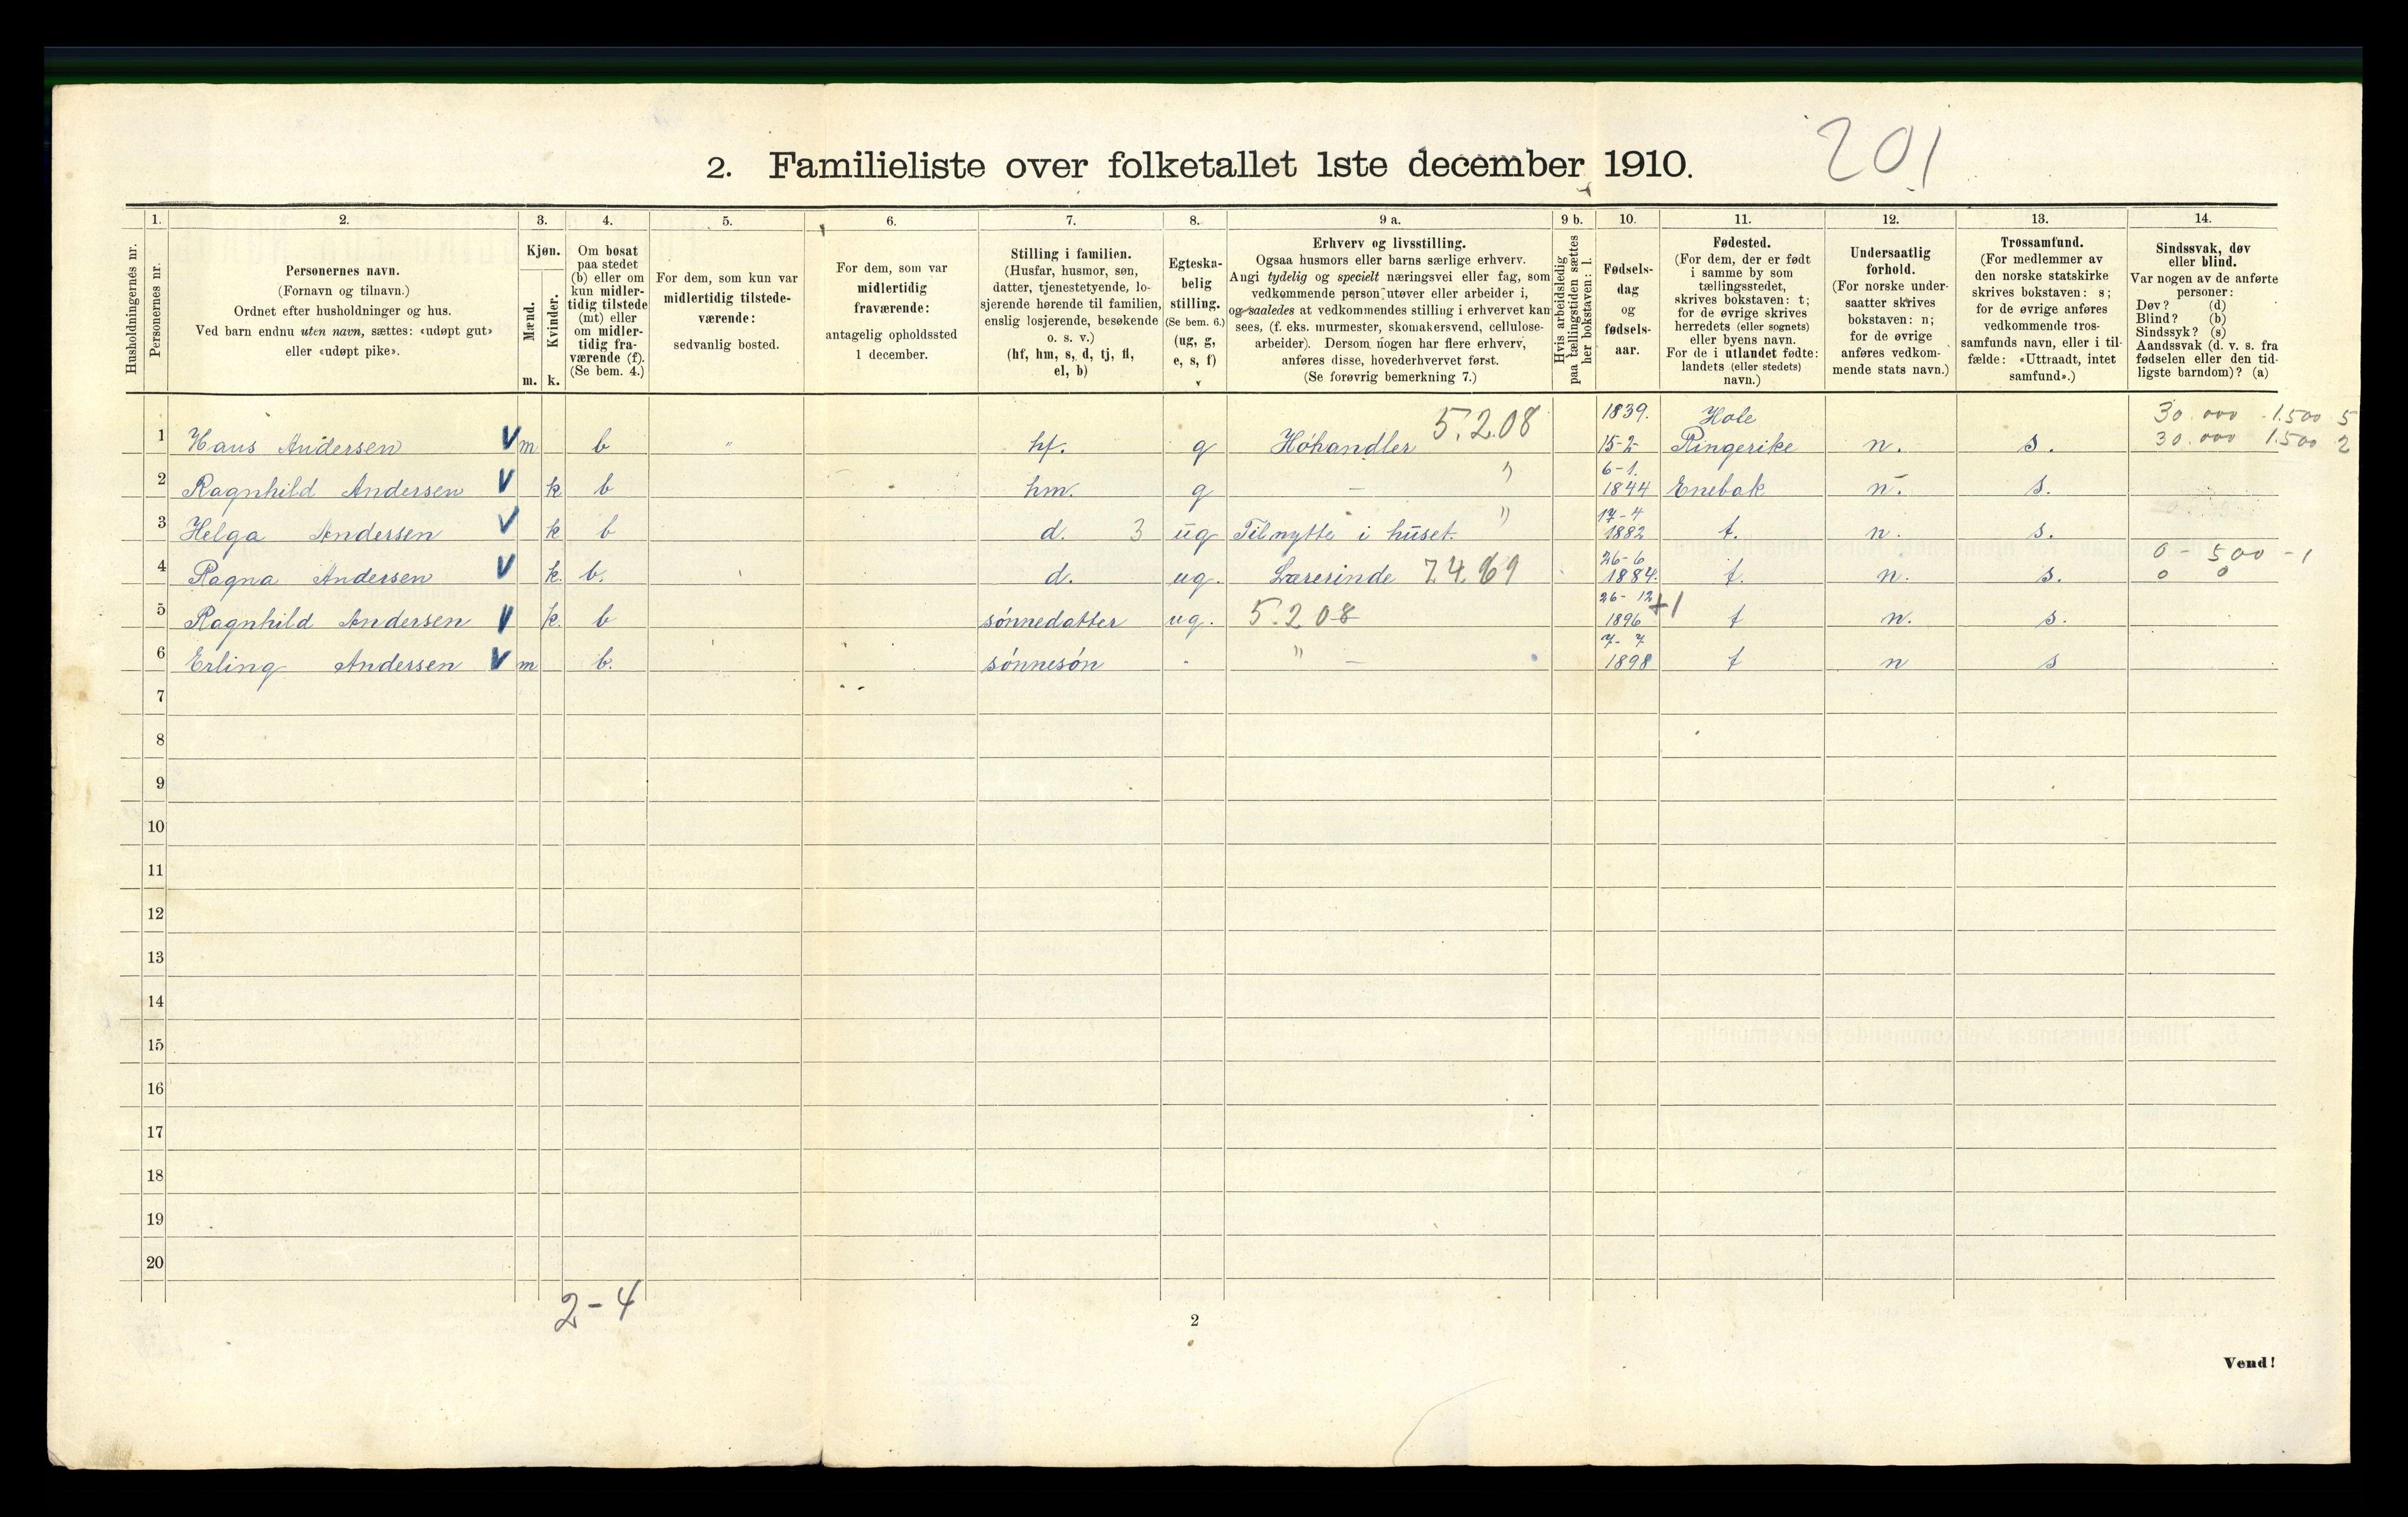 2. Familieliste over folketallet 1ste december 1910.
201
Husholdningernes nr.
1.
Personernes nr.
2.
Personernes navn.
(Fornavn og tilnavn.)
Ordnet efter husholdninger og hus.
Ved barn endnu uten navn, sættes: «udøpt gut»
eller «udøpt pike».
3.
Kjøn.
Mænd.
Kvinder.
m. k.
4.
Om bosat
paa stedet
(b) eller om
kun midler-
tidig tilstede
(mt) eller
om midler-
tidig fra-
værende (f).
(Se bem. 4.)
5.
For dem, som kun var
midlertidig tilstede-
værende:
sedvanlig bosted.
6.
For dem, som var
midlertidig
fraværende:
antagelig opholdssted
1 december.
7.
Stilling i familien.
(Husfar, husmor, søn,
datter, tjenestetyende, lo-
sjerende hørende til familien,
enslig losjerende, besøkende
o. s. v.)
(hf, hm, s, d, tj, fl,
el, b)
8.
Egteska-
belig
stilling.
(Se bem. 6.)
(ug, g,
e, s, f)
9 a.
Erhverv og livsstilling.
Ogsaa husmors eller barns særlige erhverv.
Angi tydelig og specielt næringsvei eller fag, som
vedkommende person utøver eller arbeider i,
og saaledes at vedkommendes stilling i erhvervet kan
sees, (f. eks. murmester, skomakersvend, cellulose-
arbeider). Dersom nogen har flere erhverv,
anføres disse, hovederhvervet først.
(Se forøvrig bemerkning 7.)
9 b.
Hvis arbeidsledig
paa tællingstiden sættes
her bokstaven: l.
10.
Fødsels-
dag
og
fødsels-
aar.
11.
Fødested.
(For dem, der er født
i samme by som
tællingsstedet,
skrives bokstaven: t;
for de øvrige skrives
herredets (eller sognets)
eller byens navn.
For de i utlandet fødte:
landets (eller stedets)
navn.)
12.
Undersaatlig
forhold.
(For norske under-
saatter skrives
bokstaven: n;
for de øvrige
anføres vedkom-
mende stats navn.)
13.
Trossamfund.
(For medlemmer av
den norske statskirke
skrives bokstaven: s;
for de øvrige anføres
vedkommende tros-
samfunds navn, eller i til-
fælde: «Uttraadt, intet
samfund».)
14.
Sindssvak, døv
eller blind.
Var nogen av de anførte
personer:
Døv? (d)
Blind? (b)
Sindssyk? (s)
Aandssvak (d. v. s. fra
fødselen eller den tid-
ligste barndom)? (a)
1839. Hole 30.000 1.500 5
1 Hans Andersen V m b " hf. g Høhandler 5.2.08 15-2- Ringerike n. s. 30.000 1.500 2
6-1.
2 Ragnhild Andersen V k b hm. g — " 1844 Enebak n. s.
17-4
3 Helga Andersen V k b d. 3 ug Til nytte i huset. " 1882 t. n. s.
26-6 0 - 500 - 1
4 Ragna Andersen V k. b. d. ug. Lærerinde 1884. t. n. s. 0 0
26-12 +1
5 Ragnhild Andersen V k. b sønnedatter ug. 5.2 08 1896 t n. s.
7-7
6 Erling Andersen V m b. sønnesøn - " — 1898 t n s
7
8
9
10
11
12
13
14
15
16
17
18
19
20
2-4
2
Vend!